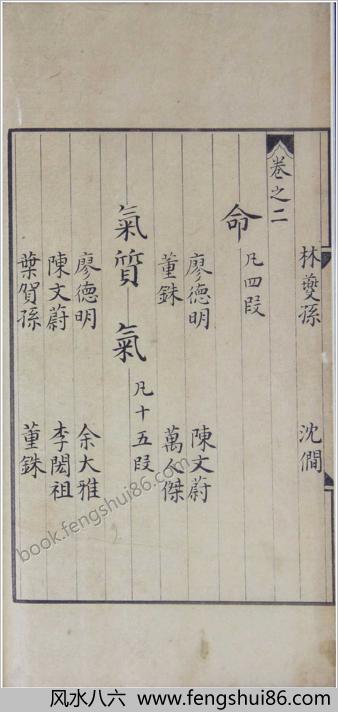 林夔孫 沈僩
卷之二
命 凡四段
廖德明 陳文蔚
董銖 萬人傑
氣質 氣 凡十五段
廖德明 余大雅
陳文蔚 李閎祖
葉賀孫 董銖
book.fengshui86.com
风水八六 www.fengshui86.com